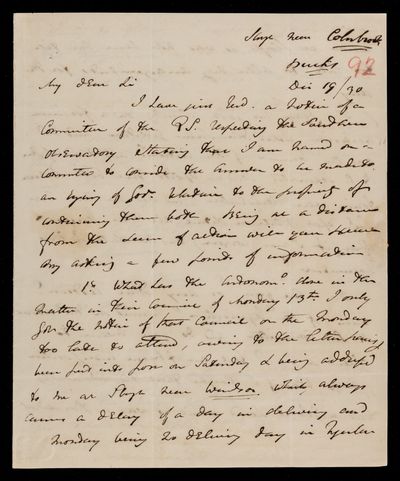 Slough near Colnbrook
Bucks
92
Dec 19/30
My dear Sir
I have just recd. a notice of a
Committee of the R.S. respecting the Southern
Observatory stating that I am named on a
committee to consider the answer to be made to
an inquiry of Govt. relative to the propriety of
continuing them both. Being at a distance
from the scene of action will you excuse
my asking a few points of information
1o. What has the Astronoml. done in the
matter in their Council of Monday 13th. I only
got the notice of that Council on the Monday
too late to attend, owing to the letter having
been put into post on Saturday & being addressd
to me at Slough near Windsor which always
causes a delay of a day in delivery and
Monday being no delivery day in